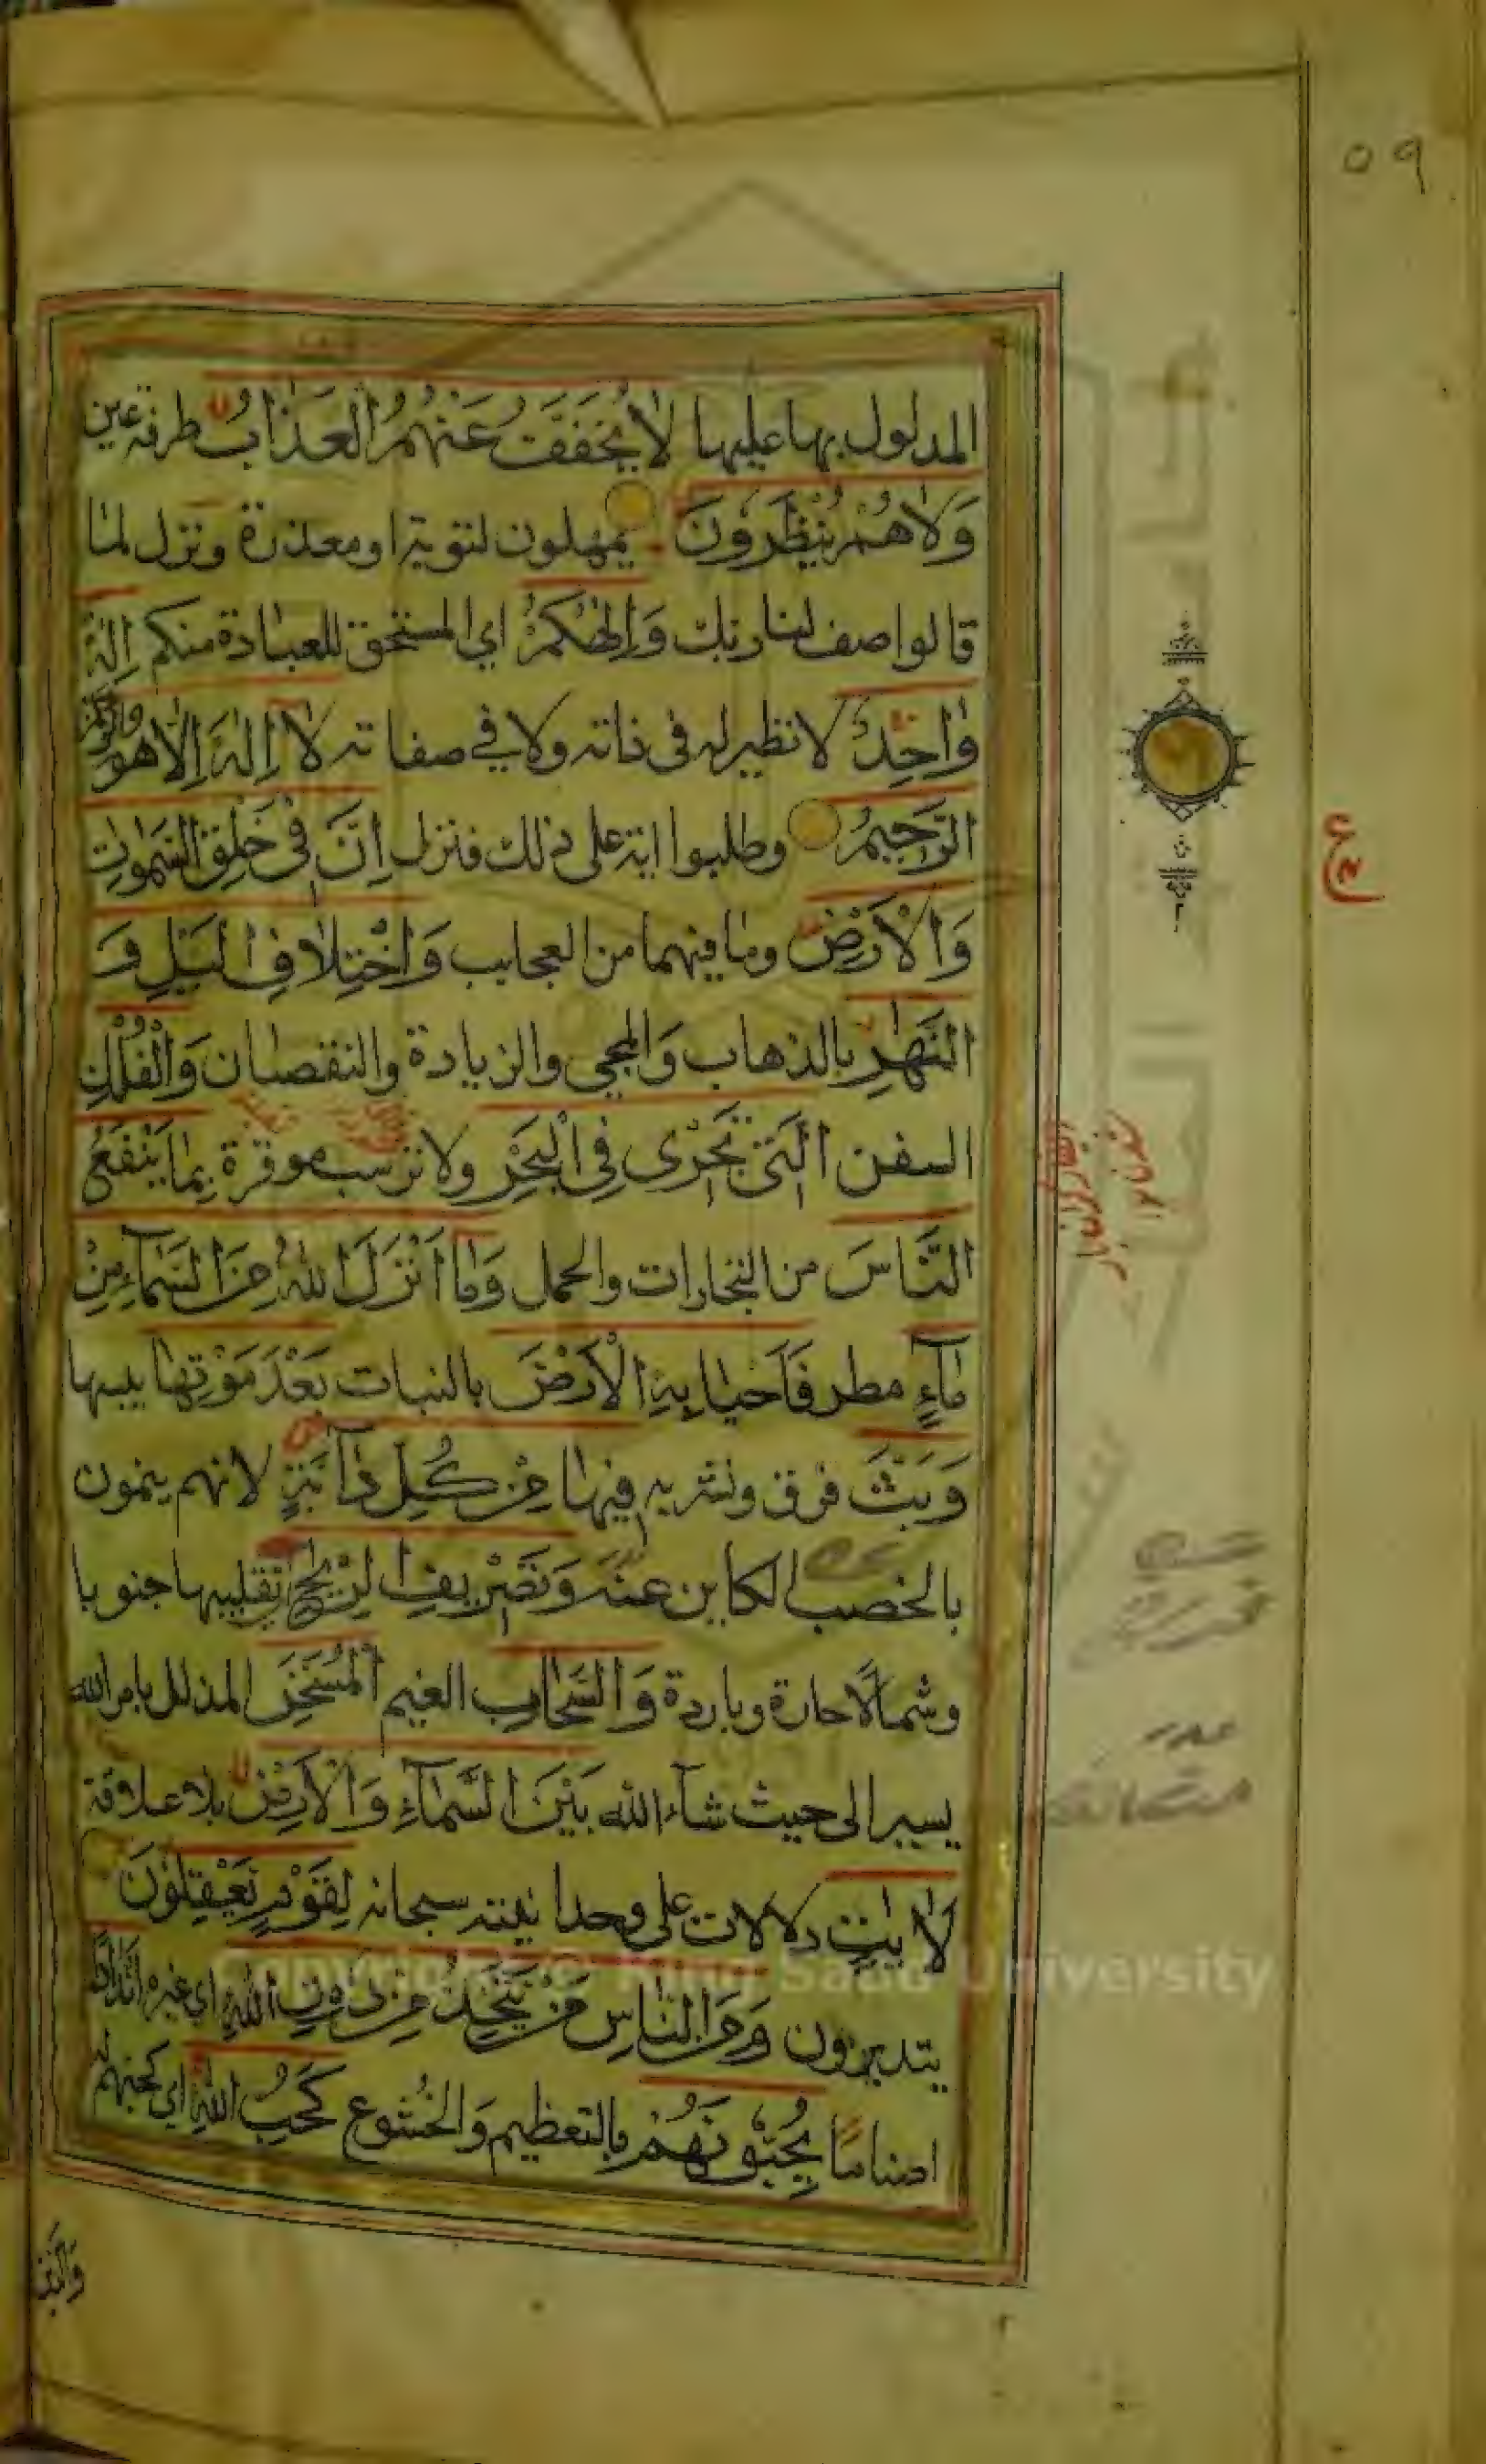 ٥٩
المدلول بها عليها لَا يُخَفَّفُ عَنْهُمُ الْعَذَابُ طرفة عين
وَلَا هُمْ يُنْظَرُونَ يمهلون لتوبة او معذرة ونزل لما
قالوا صف لنا ربك وَإِلٰهُكُمْ اي المستحق للعبادة منكم إِلٰهٌ
وَاحِدٌ لا نظير له في ذاته ولا في صفاته لَا إِلٰهَ إِلَّا هُوَ
الرَّحِيمُ وطلبوا اية على ذلك فنزل إِنَّ فِي خَلْقِ السَّمٰوٰتِ
وَالْأَرْضِ وما فيهما من العجايب وَاخْتِلَافِ الَّيْلِ وَ
النَّهَارِ بالذهاب وَالمجي والزيادة والنقصان وَالْفُلْكِ
السفن الَّتِي تَجْرِي فِي الْبَحْرِ ولا ترسب موقرة بِمَا يَنْفَعُ
النَّاسَ من التجارات والحمل وَمَا أَنْزَلَ اللّٰهُ مِنَ السَّمَآءِ مِنْ
مَآءٍ مطر فَأَحْيَا بِهِ الْأَرْضَ بالنبات بَعْدَ مَوْتِهَا يبسها
وَبَثَّ فرق ونشر به فِيهَا مِنْ كُلِّ دَآبَّةٍ لانهم ينمون
بالخصب الكاين عنه وَتَصْرِيفِ الرِّيٰحِ تقليبها جنوبا
وشمالًا حارة وباردة وَالسَّحَابِ الغيم الْمُسَخَّرِ المذلل بامر الله
يسير الى حيث شآء الله بَيْنَ السَّمَآءِ وَالْأَرْضِ بلا علاقة
لَاٰيٰتٍ دلالات على وحدانيته سبحانه لِقَوْمٍ يَعْقِلُونَ
يتدبرون وَمِنَ النَّاسِ مَنْ يَتَّخِذُ مِنْ دُونِ اللّٰهِ اي غيره أَنْدَادًا
اصنامًا يُحِبُّونَهُمْ بالتعظيم وَالخُشوع كَحُبِّ اللّٰهِ اي كحبهم له
وَالَّذِ
Copyright © King Saud University